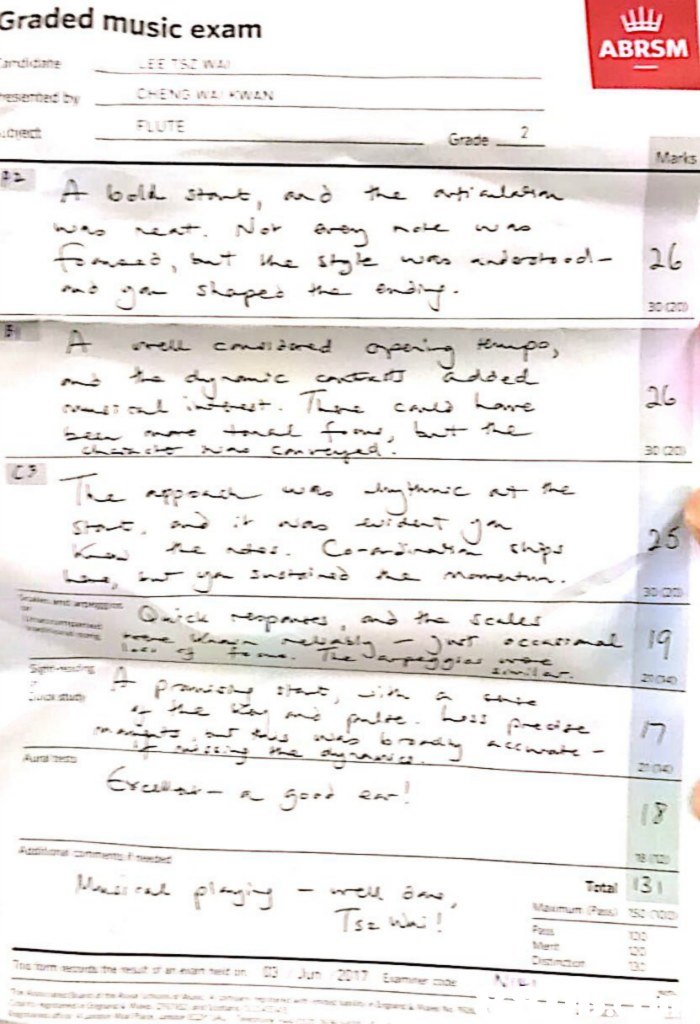 Graded music exam
ABRSM
Candidate LEE TSZ WAI
Presented by CHENG WAI KWAN
Subject FLUTE Grade 2
Marks
B2
A bold start, and the articulation
was neat. Not every note was
focused, but the style was understood –
and you shaped the ending.
26
30 (20)
B1
A well considered opening tempo,
and the dynamic contrasts added
musical interest. There could have
been more tonal focus, but the
character was conveyed.
26
30 (20)
C3
The approach was rhythmic at the
start, and it was evident you
knew the notes. Co-ordination slips
here, but you sustained the momentum.
25
30 (20)
Scales and arpeggios
or
Unaccompanied
traditional song
Quick responses, and the scales
were known reliably – just occasional
loss of focus. The arpeggios were
similar.
19
21 (14)
Sight-reading
or
Quick study
A promising start, with a sense
of the key and pulse. Less precise
moments, but this was broadly accurate –
if missing the dynamics.
17
21 (14)
Aural tests
Excellent – a good ear!
18
18 (12)
Additional comments if needed
Musical playing – well done,
Tsz Wai!
Total 131
Maximum (Pass) 150 (100)
Pass 100
Merit 120
Distinction 130
This form records the result of an exam held on 03 Jun 2017 Examiner code